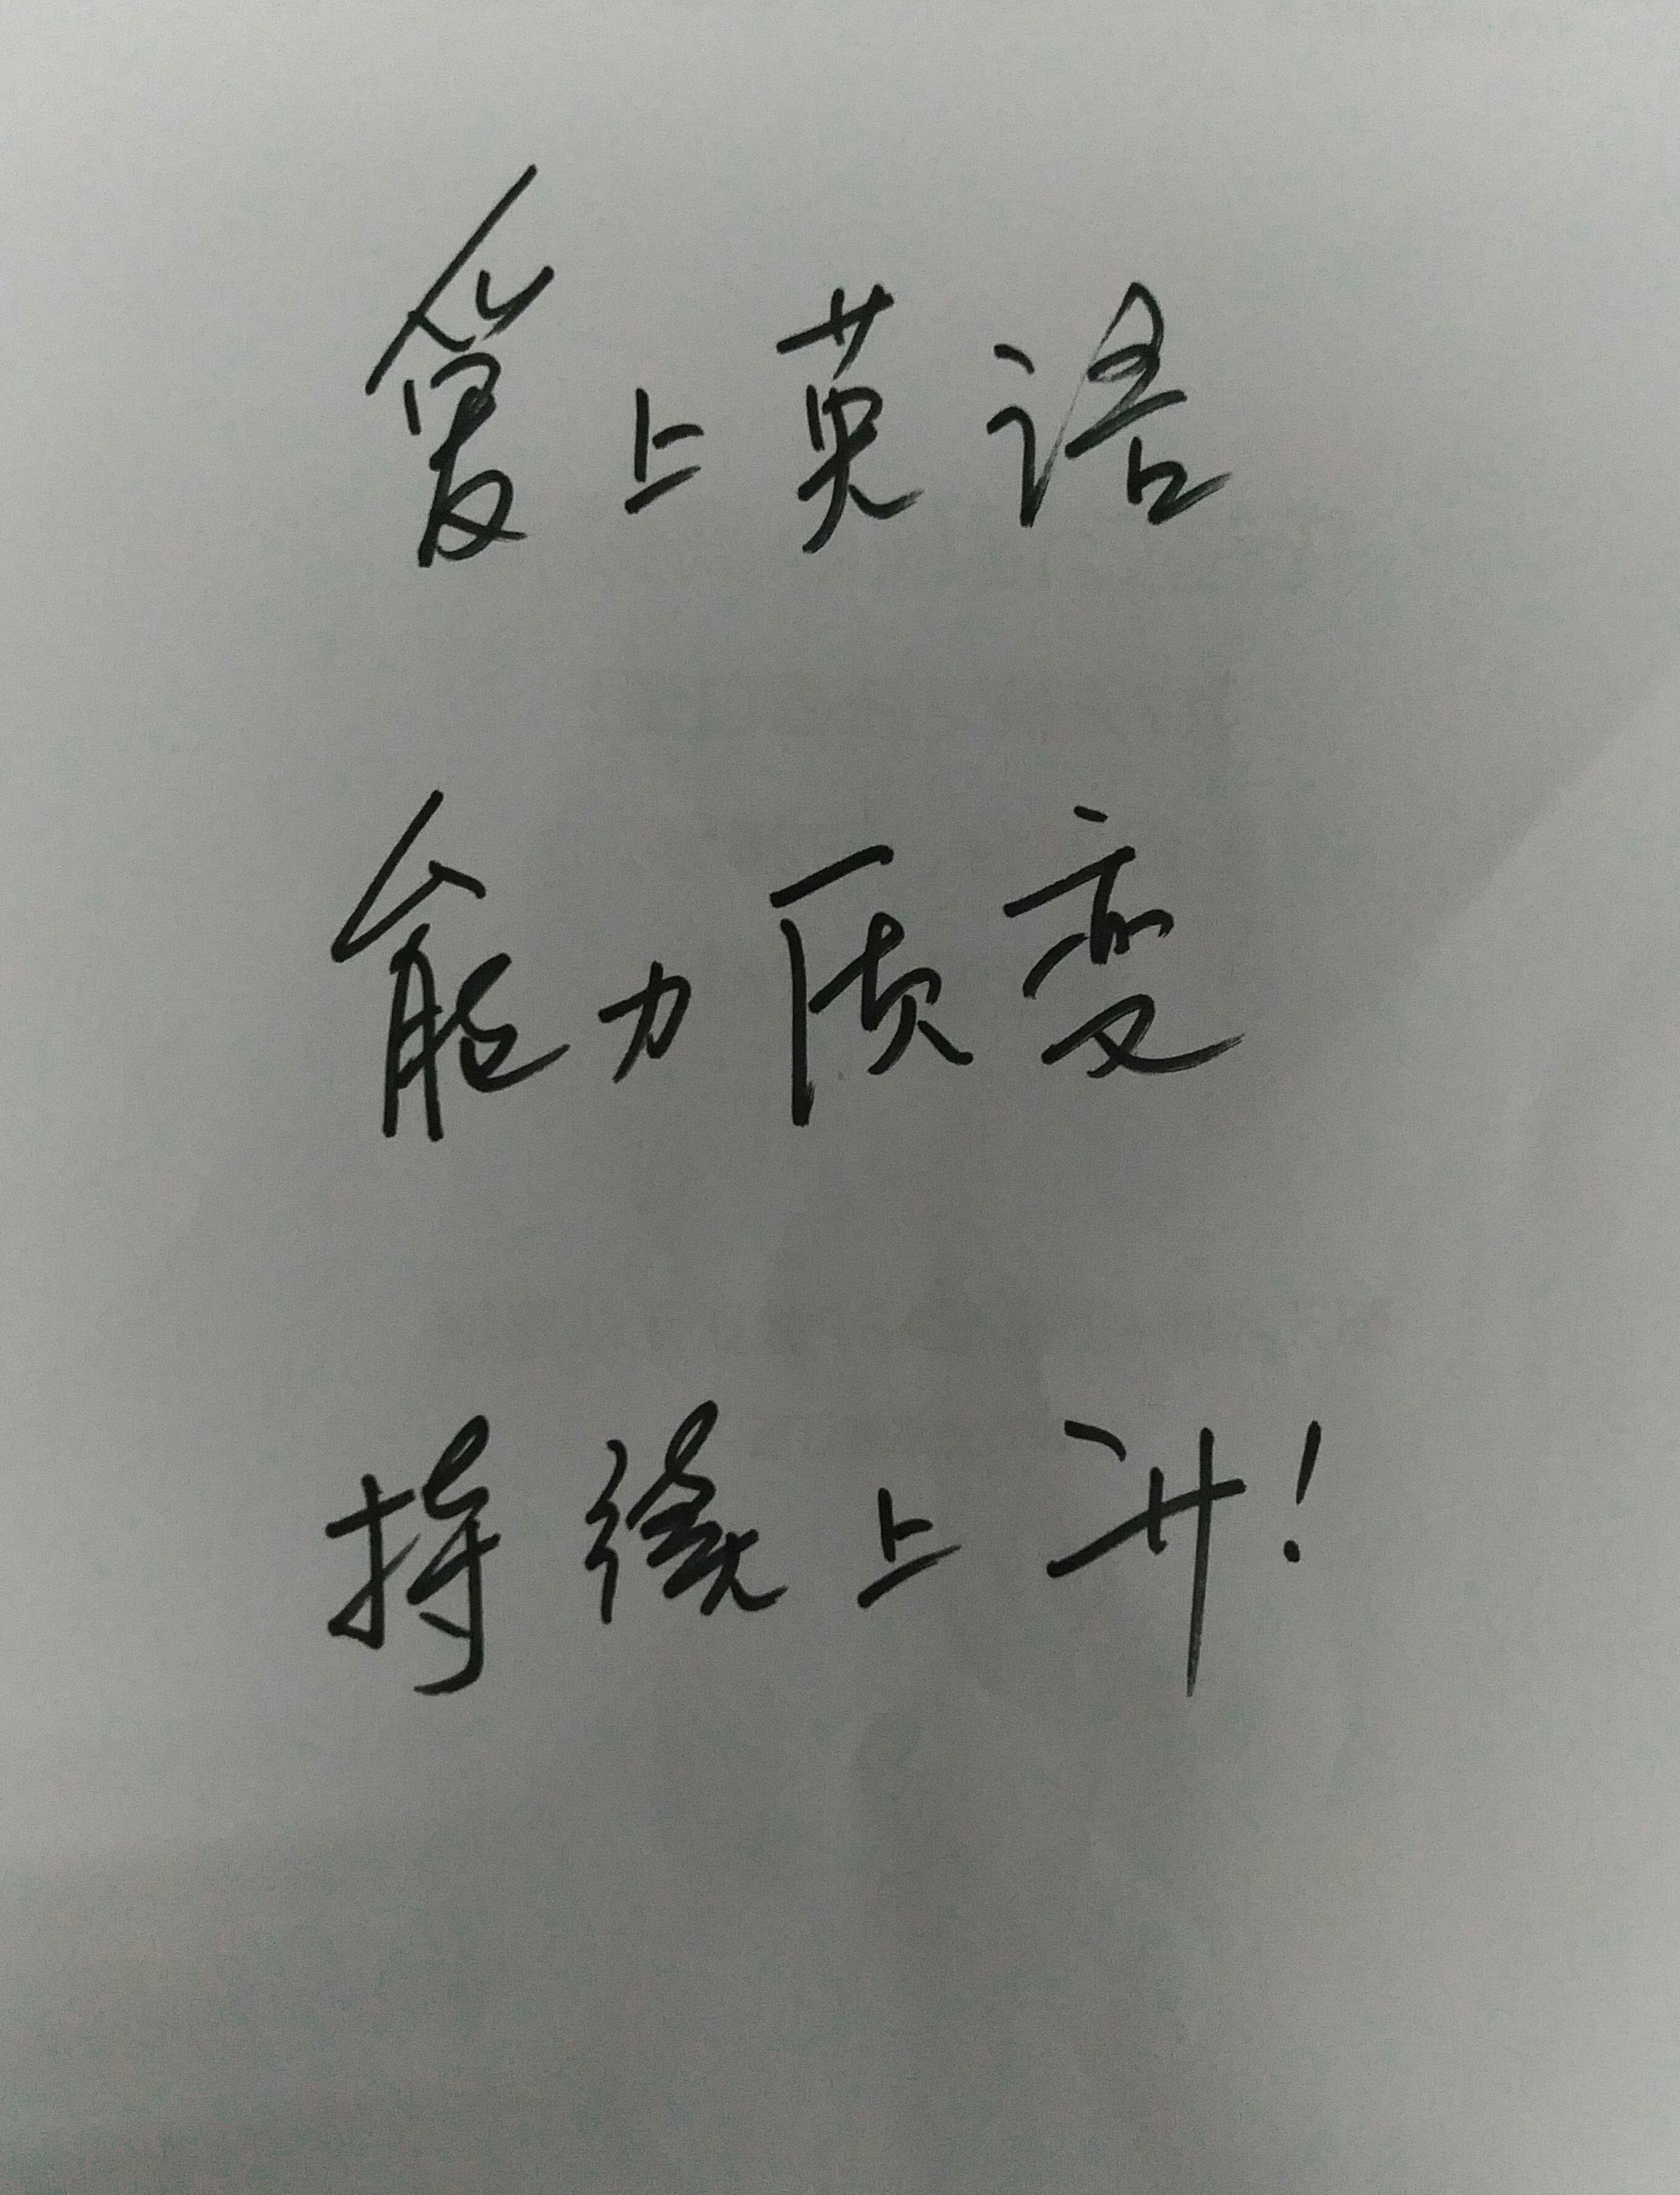 爱上英语
能力质变
持续上升！